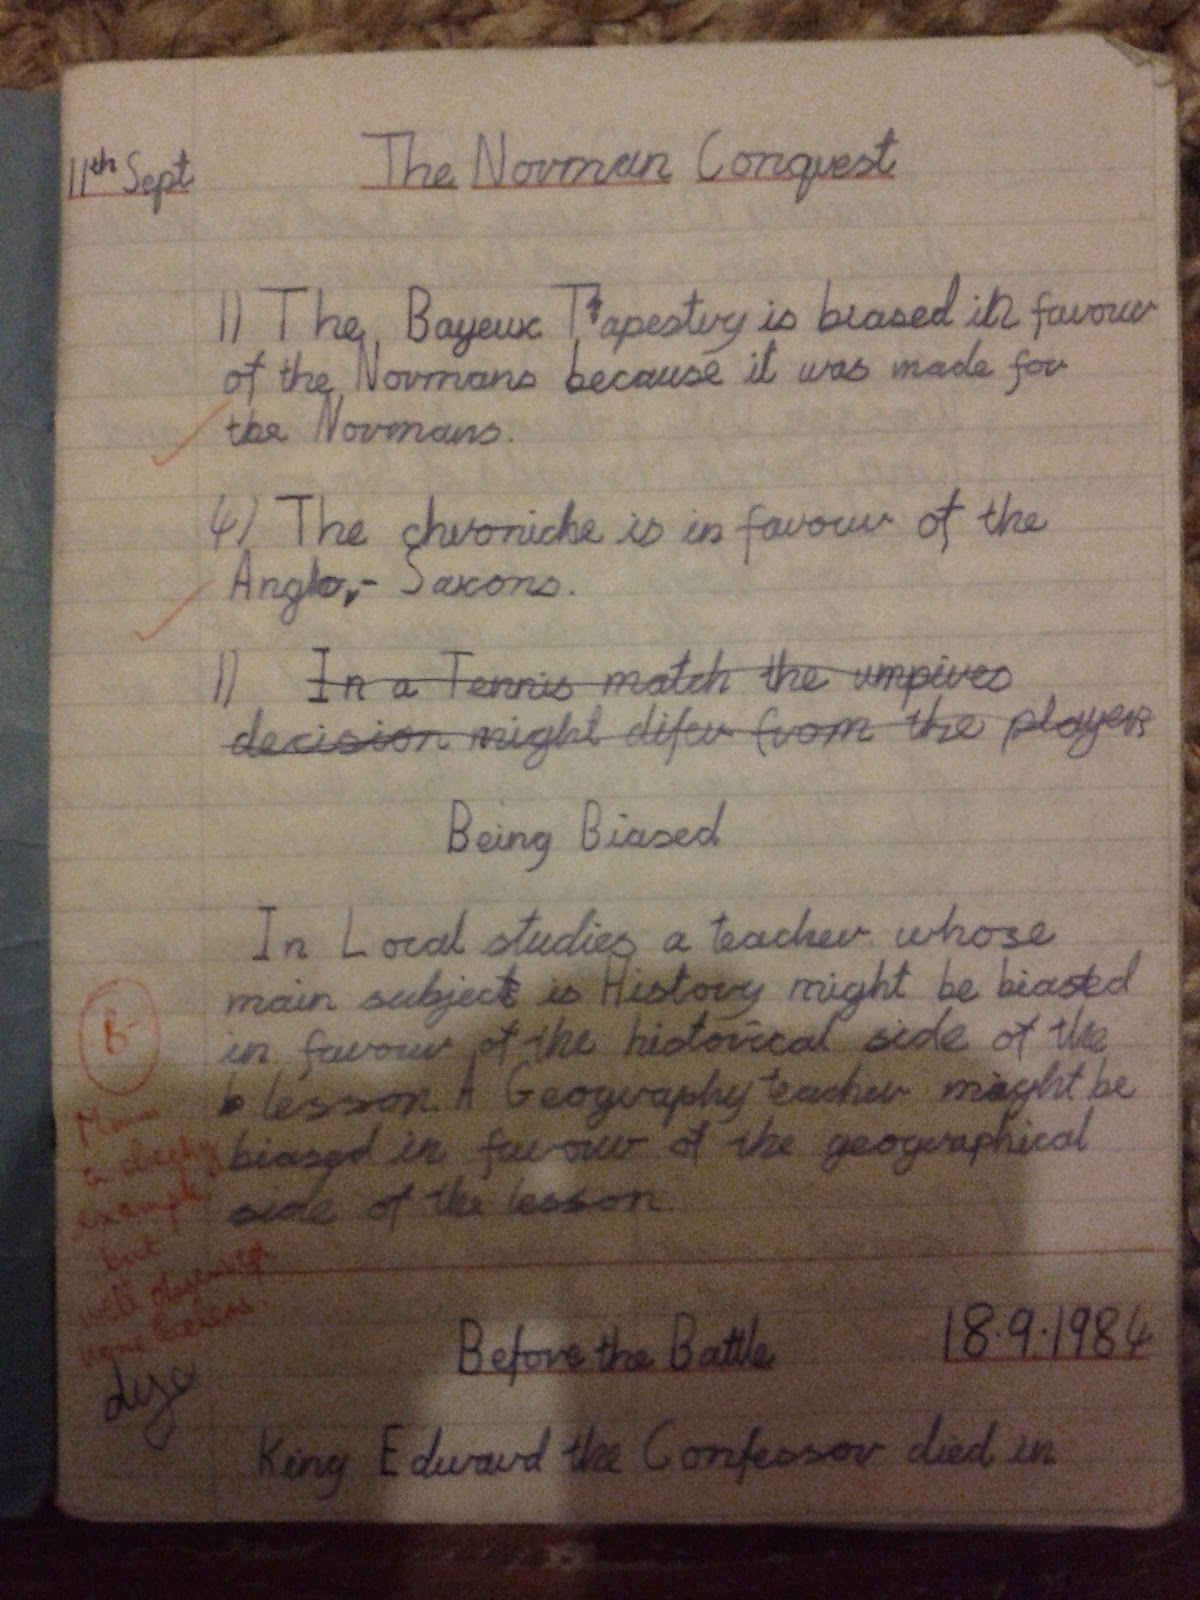 11th Sept
The Norman Conquest
1) The Bayeux Tapestry is biased in favour
of the Normans because it was made for
the Normans.
4) The chronicke is in favour of the
Anglo,- Saxons.
1) In a Tennis match the umpires
decision might difer from the players
Being Biased
In Local studies a teacher whose
main subject is History might be biased
in favour of the historical side of the
lesson. A Geography teacher might be
biased in favour of the geographical
side of the lesson.
B-
example,
but
well observed
Before the Battle
18.9.1984
King Edward the Confessor died in